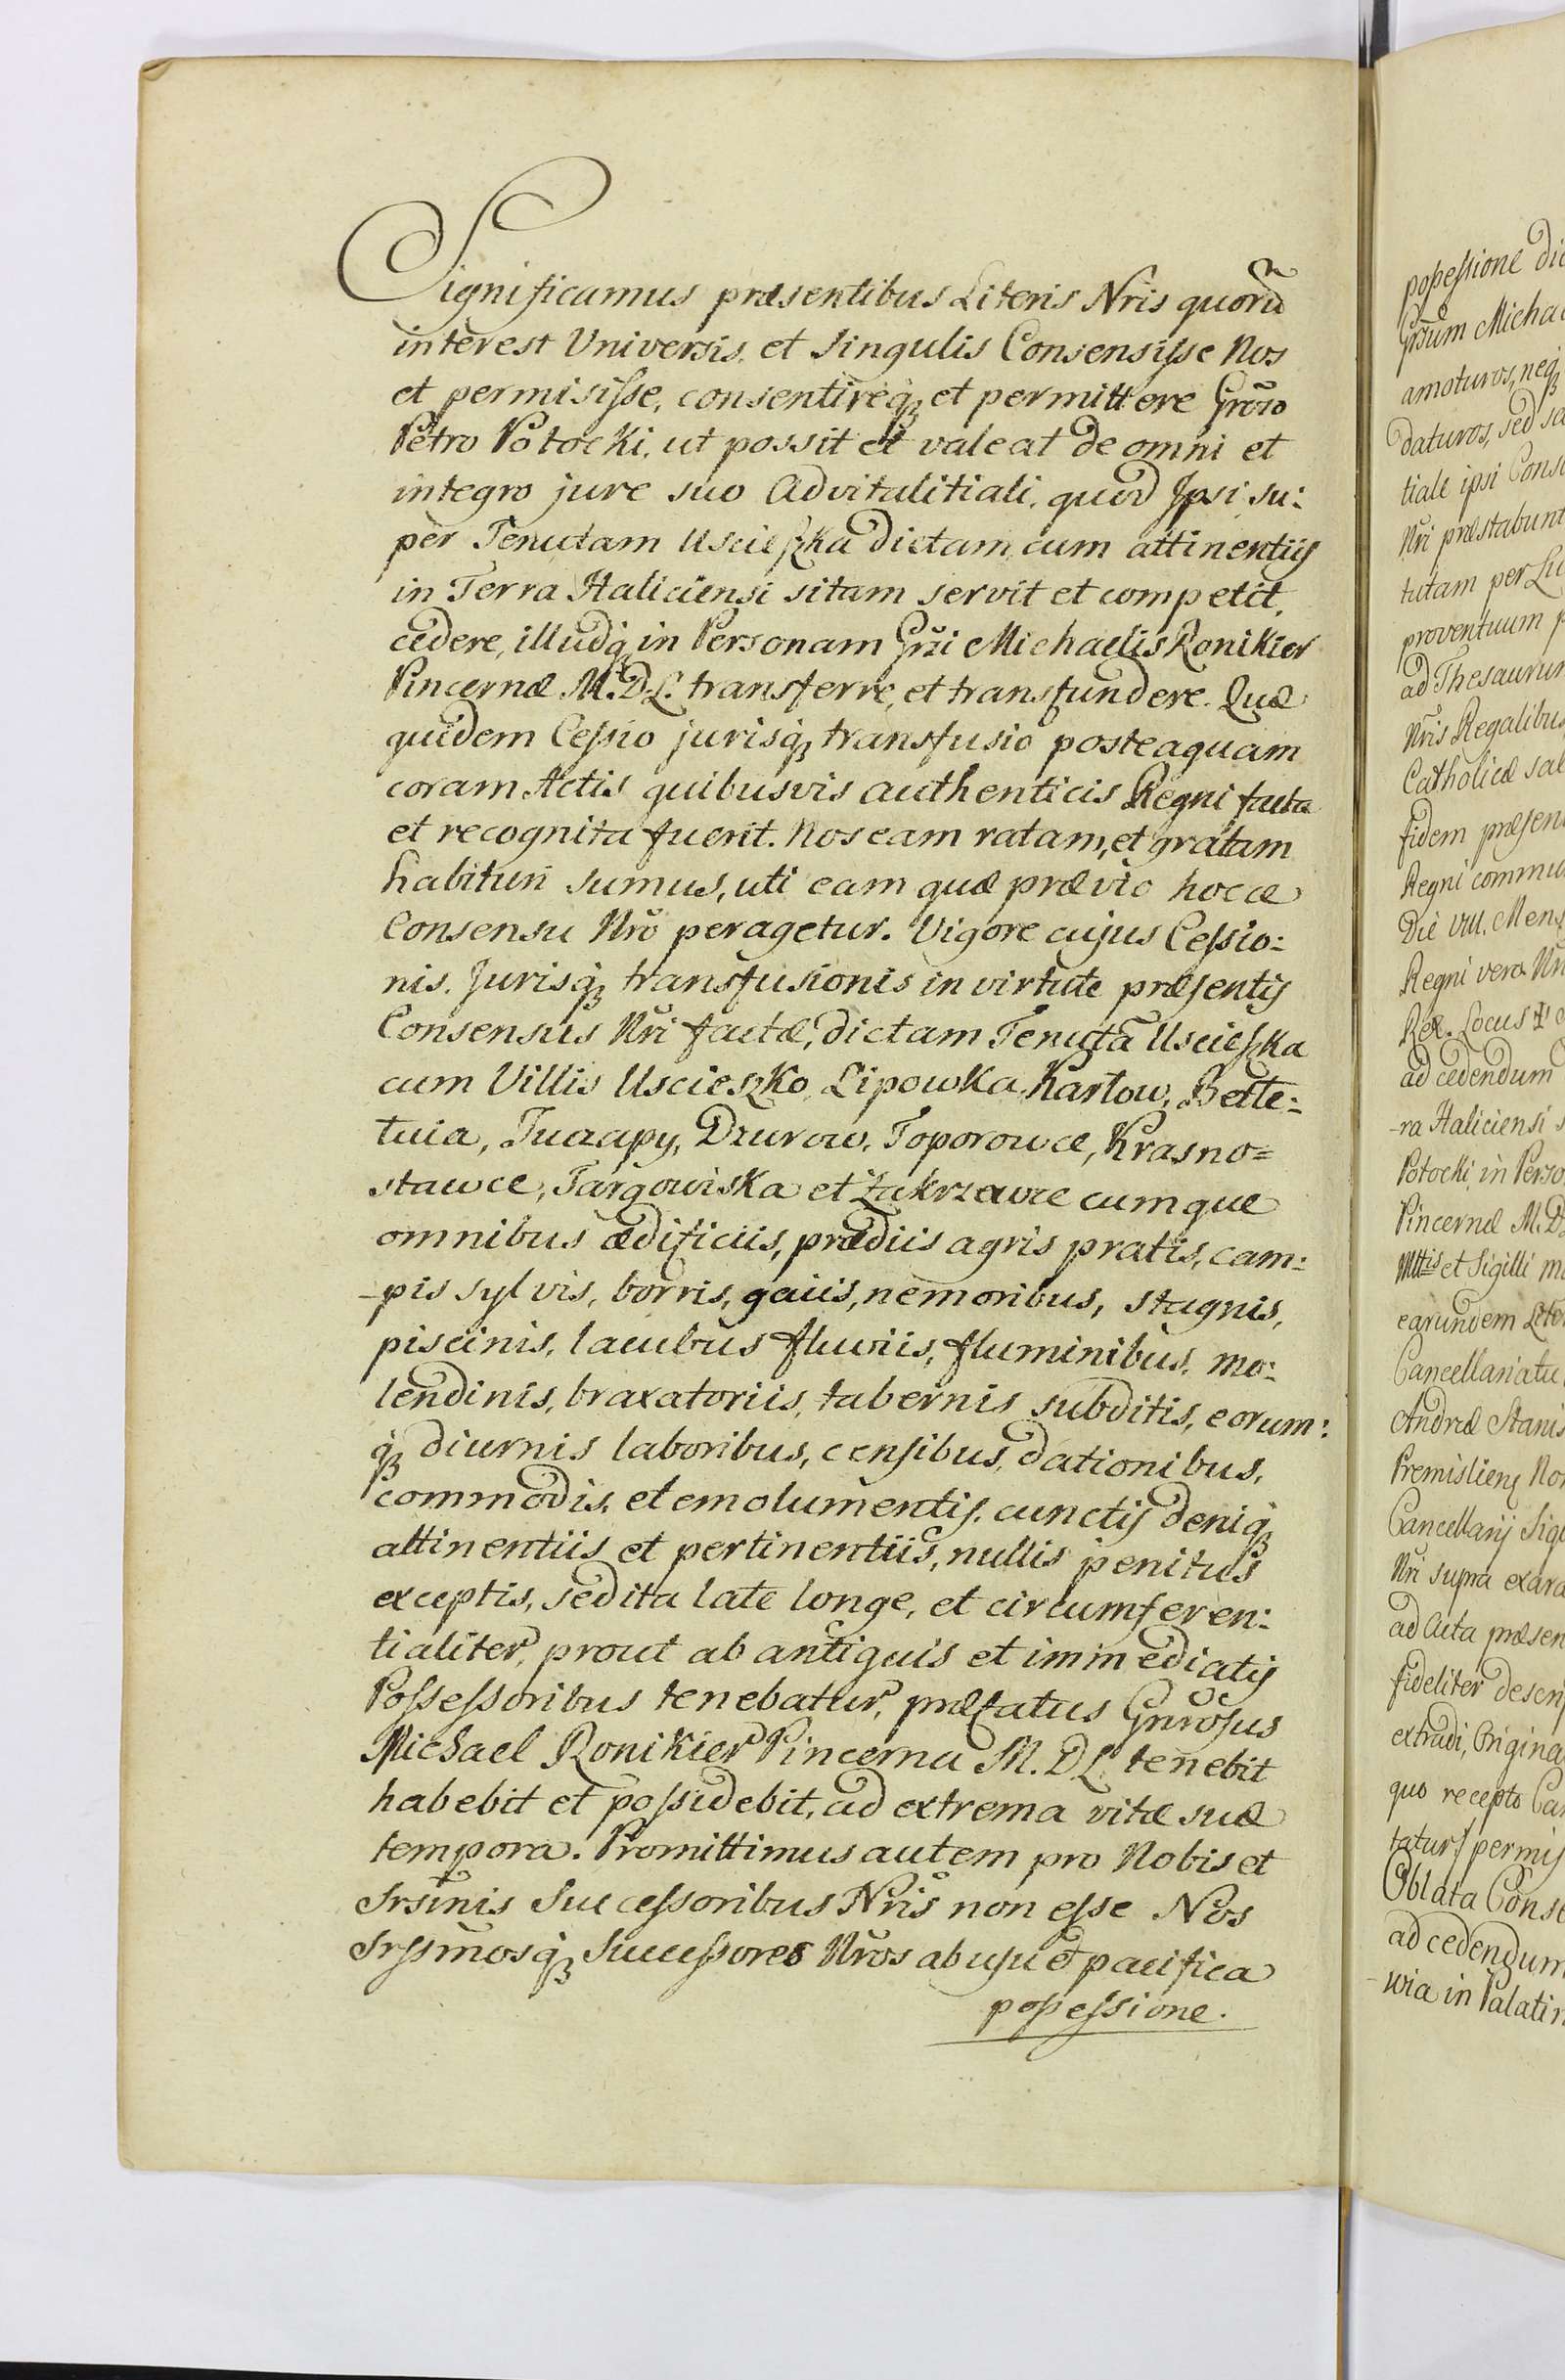 Significamus præsentibus Literis Nris quorũ
interest Universis et Singulis Consensisse Nos
et permisisse, consentireq́ꝫ et permittere Grõso
Petro Potocki, ut possit et valeat de omni et
integro jure suo Advitalitiali, quod Ipsi su:
per Tenutam Uscieszka dictam cum attinentijs
in Terra Haliciensi sitam servit et competit,
cedere, illudq́ꝫ in Personam Grzi Michaelis Ronikier
Pincernæ M.D.L. transferre, et transfundere. Quæ
quidem Cessio jurisq́ꝫ transfusio posteaquam
coram Actis quibusvis authenticis Regni facta
et recognita fuerit. Nos eam ratam, et gratam
habituri sumus, uti eam quæ prævio hocce
Consensu Nrõ peragetur. Vigore cujus Cessio:
nis, Jurisq́ꝫ transfusionis in virtute præsentis
Consensus Nri factæ, dictam Tenutã Uscieszka
cum Villis Uscieszko, Lipowka, Karlow, Bełe:
tuia, Tuczapy, Dzurow, Toporowce, Krasno=
stawce, Targowiska et Zakrzewce cumque
omnibus ædificiis, prædiis agris pratis, cam:
-pis sylvis, borris, gaiis, nemoribus, stagnis,
piscinis, lacubus fluviis, fluminibus, mo:
lendinis, braxatoriis, tabernis subditis, eorum:
q́ꝫ diurnis laboribus, censibus, dationibus,
commodis, et emolumentis, cunctis deniq́ꝫ
attinentiis et pertinentiis, nullis penitus
exceptis, sed ita late longe, et circumferen:
tialiter, prout ab antiquis et immediatis
Possessoribus tenebatur, præfatus Gnrõsus
Michael Ronikier Pincerna M.D.L. tenebit
habebit et possidebit, ad extrema vitæ suæ
tempora. Promittimus autem pro Nobis et
Srsm̃is Successoribus Nris non esse Nos
Srssm̃osq́ꝫ Successores Nros ab usu et pacifica
possessione.
possessione
Grsum Micha
amoturos, neq́ꝫ
daturos, sed
tiale ipsi Cons
Nri præstabunt
tutam per
proventuum
ad Thesaurum
Nris Regalibus
Catholicæ
fidem præsen
Regni commu
Die VIII. Mens
Regni vero Nri
Rex. Locus
ad cedendum
-ra Haliciensi
Potocki in Perso
Pincernæ M.D.
Mttis et Sigilli
earundem Liter
Cancellariatu
Andreæ Stanis
Premislien
Cancellarij Sigi
Nri supra exara
ad Acta præsen
fideliter descrip
extradi, Origina
quo recepto
tatur, permis
Oblata Conse
ad cedendum
-wia in Palatin